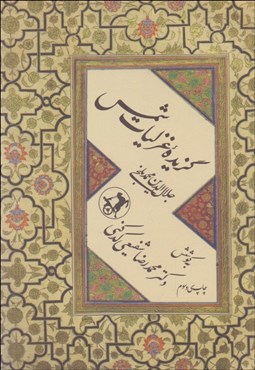 گزیدهٔ غزلیات شمس
جلال‌الدین محمد بلخی
بکوشش
دکتر محمدرضا شفیعی کدکنی
چاپ دوم